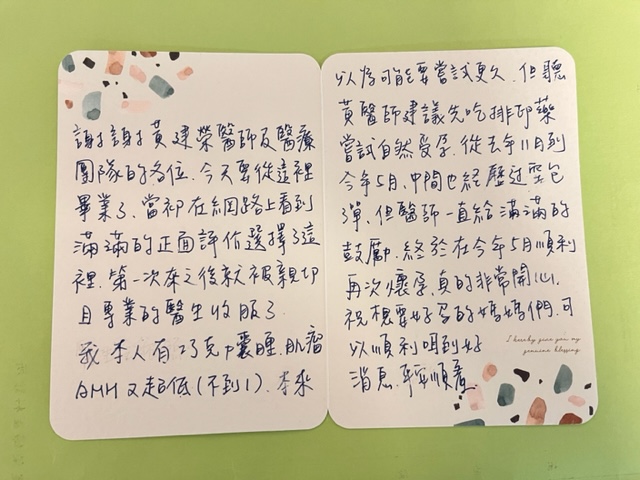 謝謝黃建榮醫師及醫療
團隊的各位.今天要從這裡
畢業了、當初在網路上看到
滿滿的正面評價選擇了這
裡.第一次來之後就被親切
且專業的醫生收服了.
我本人有巧克力囊腫.肌瘤
AMH又超低(不到1).本來
以為可能要嘗試更久.但聽
黃醫師建議先吃排卵藥
嘗試自然受孕.從去年11月到
今年5月.中間也經歷過空包
彈.但醫師一直給滿滿的
鼓勵.終於在今年5月順利
再次懷孕.真的非常開心.
祝想要好孕的媽媽們.可
以順利唱到好
消息.平安順產
I hereby give you my
genuine blessing.